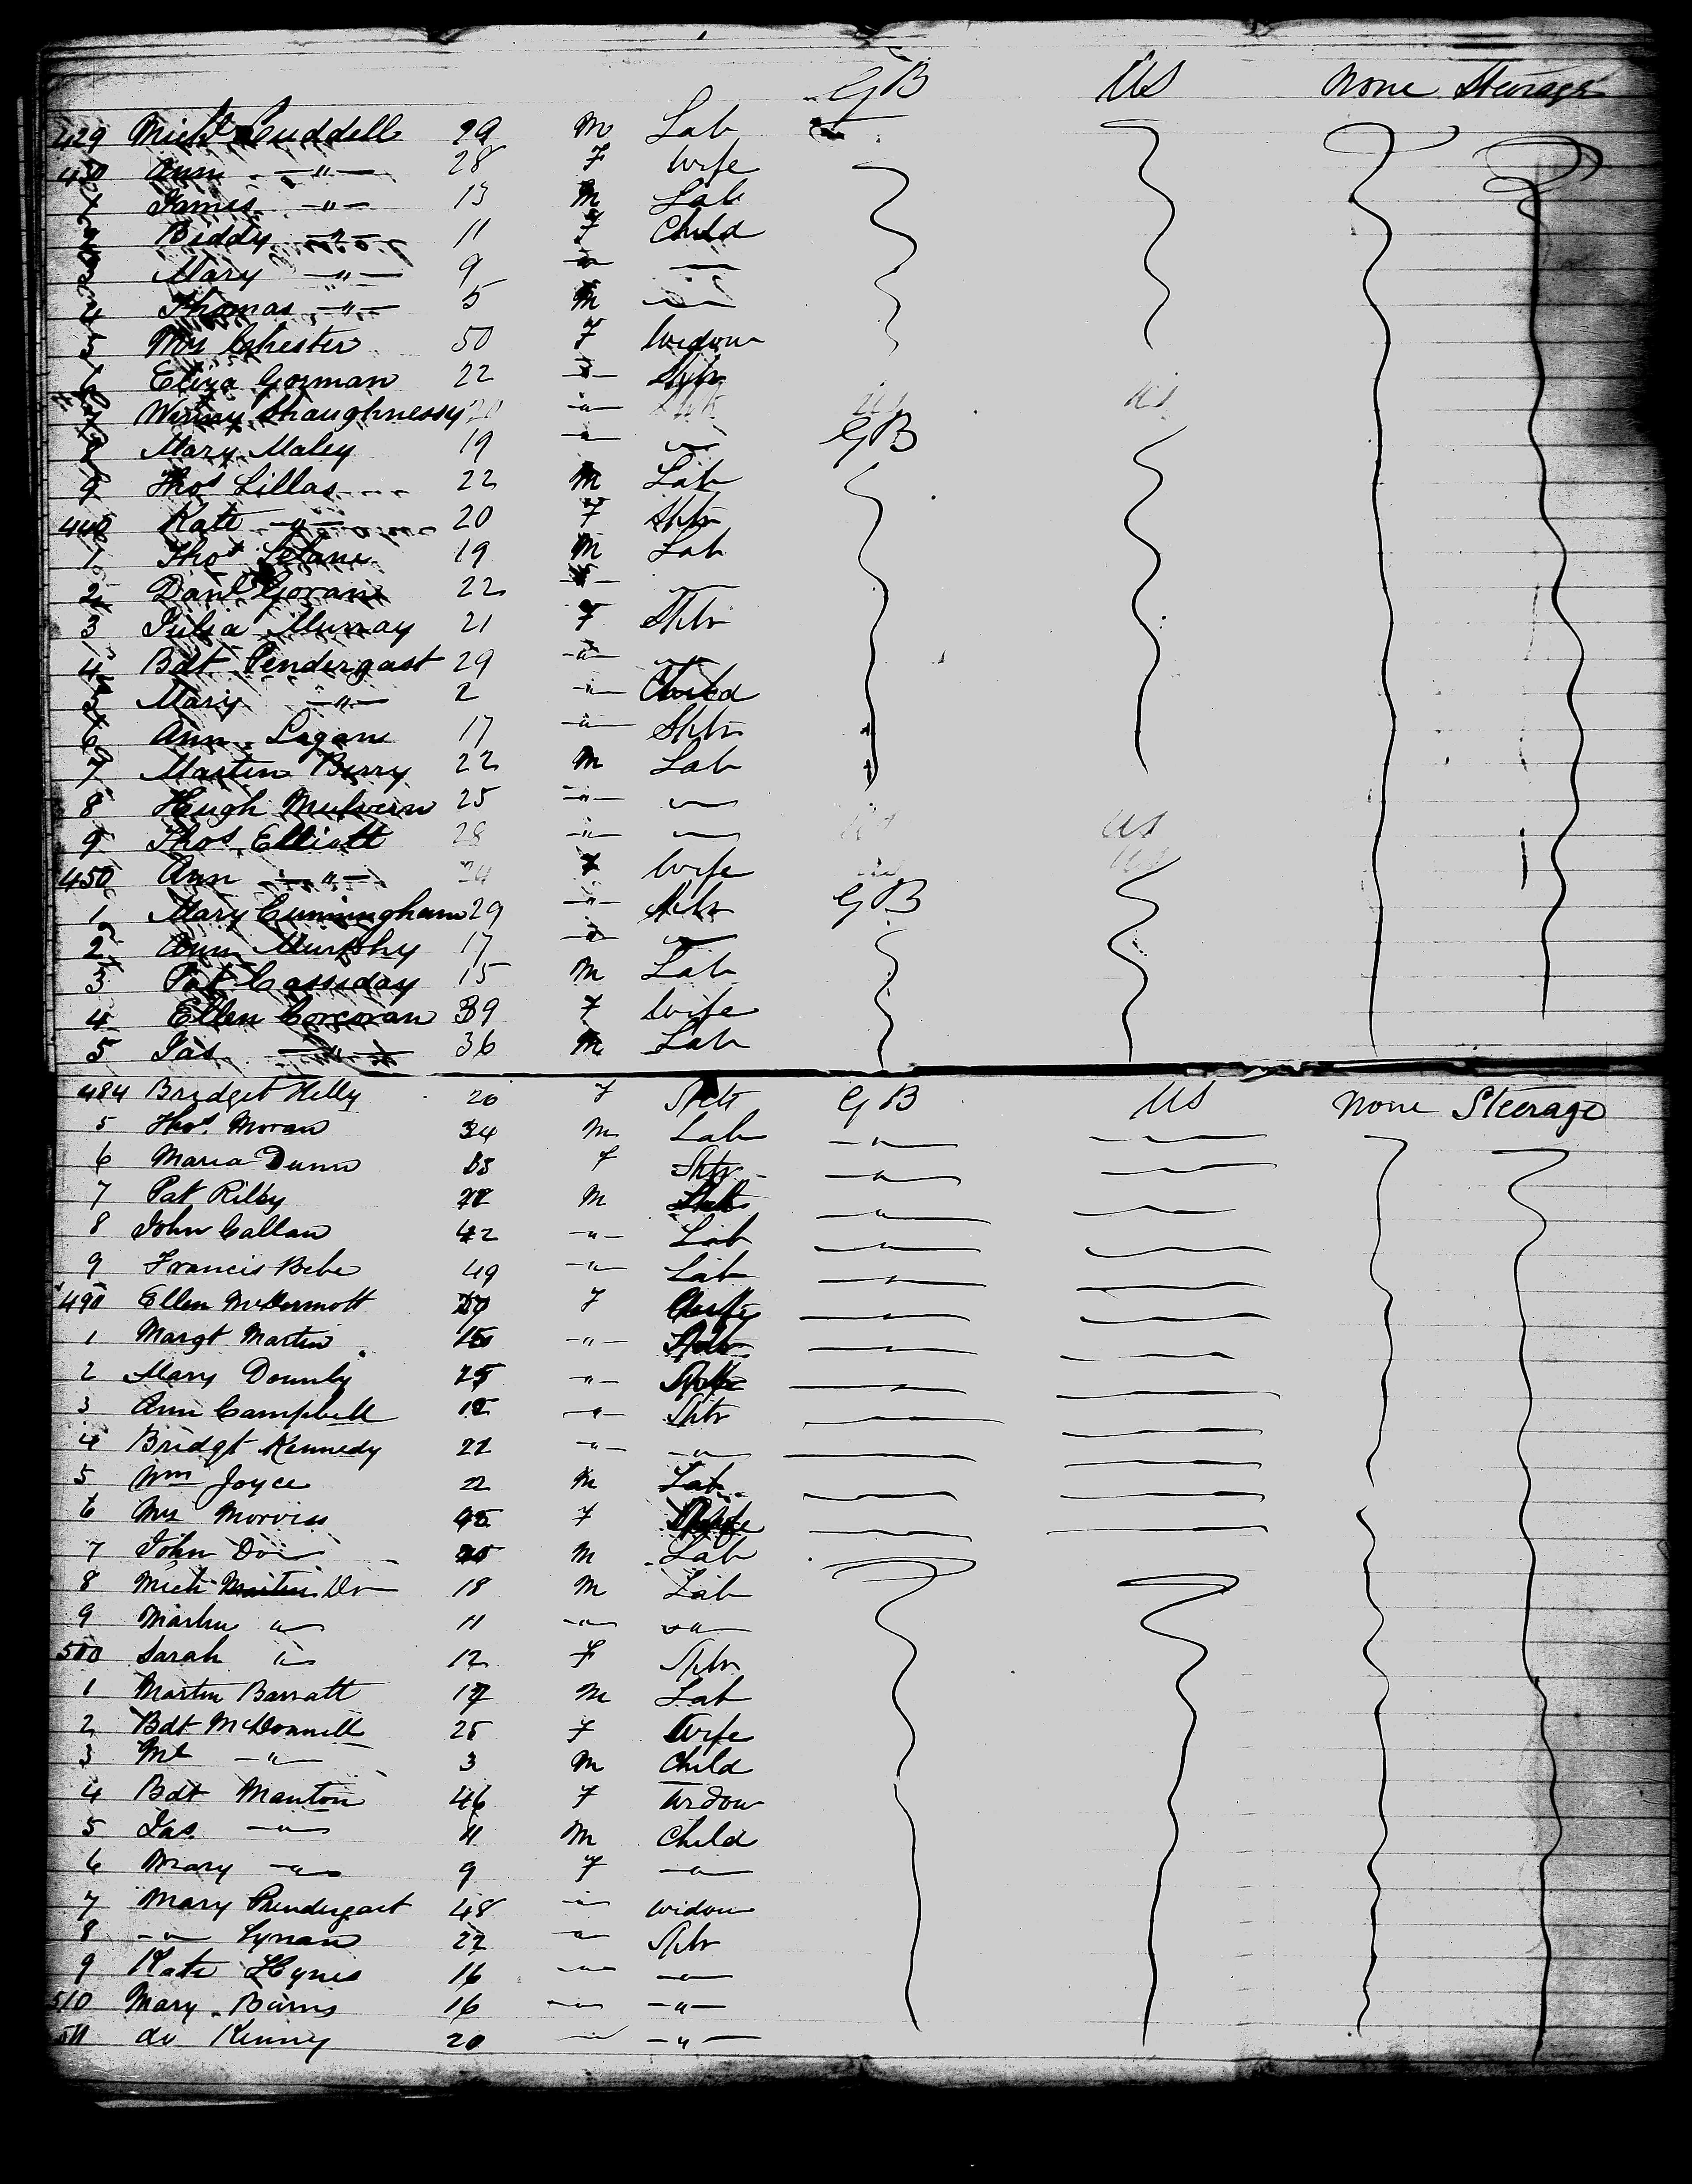 GB US None Steerage
429 Mich Cuddell 29 M Lab
430 Ann —"— 28 F Wife
1 James —"— 13 M Lab
2 Biddy —"— 11 F Child
3 Mary —"— 9 —"— —
4 Thomas —"— 5 M —"—
5 Mrs Chester 50 F Widow
6 Eliza Gorman 22 —"— Sptr
7 Winny Shaughnessy 20 —"— US US
8 Mary Maley 19 —"— —"— GB
9 Thos Lillas 22 M Lab
440 Kate —"— 20 F Sptr
1 Thos 19 M Lab
2 Danl Goran 22 —"—
3 Julia Murray 21 F Sptr
4 Bdt Pendergast 29 —"— —"—
5 Mary —"— 2 —"— Child
6 Ann Logan 17 —"— Sptr
7 Martin Berry 22 M Lab
8 Hugh 25 —"— —"—
9 Thos Elliott 28 —"— —"— US
450 Ann —"— 24 F Wife US
1 Mary Cunningham 29 —"— Sptr GB
2 Ann Murphy 17 —"— —"—
3 Pat Cassiday 15 M Lab
4 Ellen Corcoran 39 F Wife
5 Jas —"— 36 M Lab
484 Bridget Kelly 20 F Sptr GB US None Steerage
5 Thos. Moran 34 M Lab —"— —"—
6 Maria Dunn F Sptr —"— —"—
7 Pat Riley M —"— —"—
8 John Callan 42 —"— Lab —"— —"—
9 Francis Bebe 49 —"— Lab —"— —"—
490 Ellen McDermott F —"— —"—
1 Margt Martin —"— —"— —"—
2 Mary 25 —"— —"— —"—
3 Ann Campbell —"— Sptr —"— —"—
4 Bridgt Kennedy 22 —"— —"— —"— —"—
5 Wm Joyce 22 M Lab —"— —"—
6 Mrs Morriss 45 F —"— —"—
7 John Do 20 M Lab
8 Mich Do 18 M Lab
9 Martin " 11 —"— —"—
500 Sarah " 12 F Sptr
1 Martin Barratt 17 M Lab
2 Bdt McDonnell 25 F Wife
3 Ml —"— 3 M Child
4 Bdt Manton 46 F Widow
5 Jas. —"— 11 M Child
6 Mary —"— 9 F —"—
7 Mary Prendergast 48 —"— Widow
8 —"— Lynan 22 —"— Sptr
9 Kate Hynes 16 —"— —"—
510 Mary Burns 16 —"— —"—
511 do Kenny 20 —"— —"—